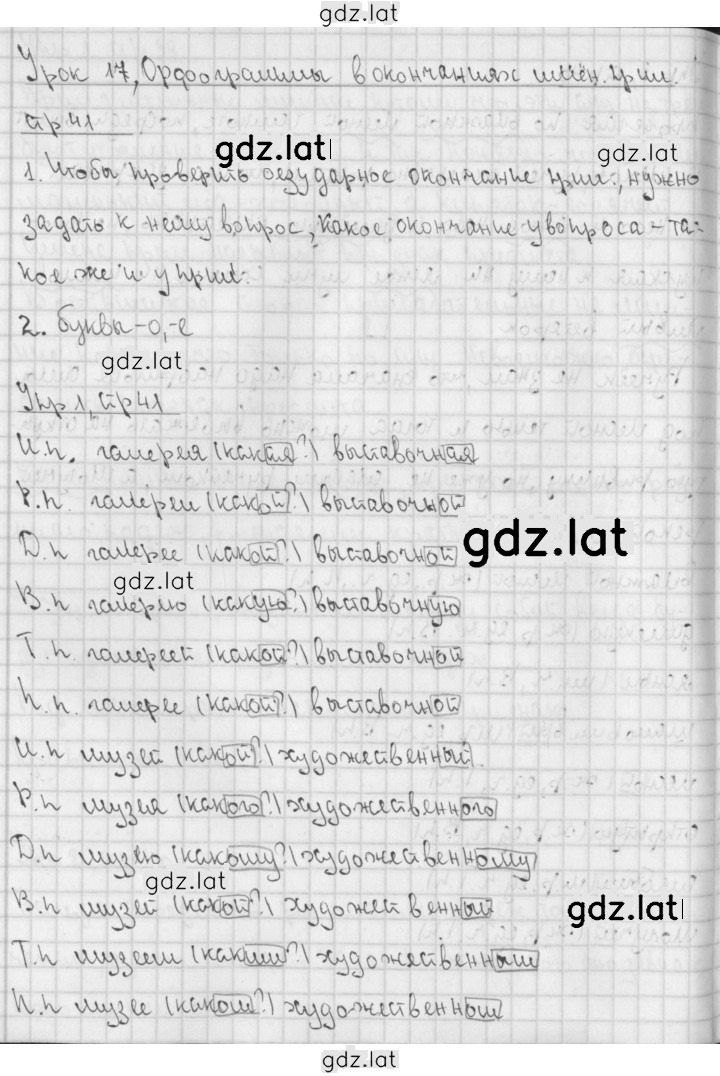 gdz.lat
Урок 17, Орфограммы в окончаниях имён. прил.
стр 41
gdz.lat
gdz.lat
1. Чтобы проверить безударное окончание прил., нужно
задать к нему вопрос, какое окончание у вопроса - та-
кое же и у прил.
2. буквы -о, -е
gdz.lat
Упр 1, стр 41
И.п. галерея (какая?) выставочная
Р.п. галереи (какой?) выставочной
Д.п галерее (какой?) выставочной
gdz.lat
gdz.lat
В.п галерею (какую?) выставочную
Т.п. галереей (какой?) выставочной
П.п. галерее (какой?) выставочной
И.п музей (какой?) художественный
Р.п музея (какого?) художественного
Д.п музею (какому?) художественному
gdz.lat
В.п музей (какой?) художественный
gdz.lat
Т.п музеем (каким?) художественным
П.п музее (каком?) художественном
gdz.lat